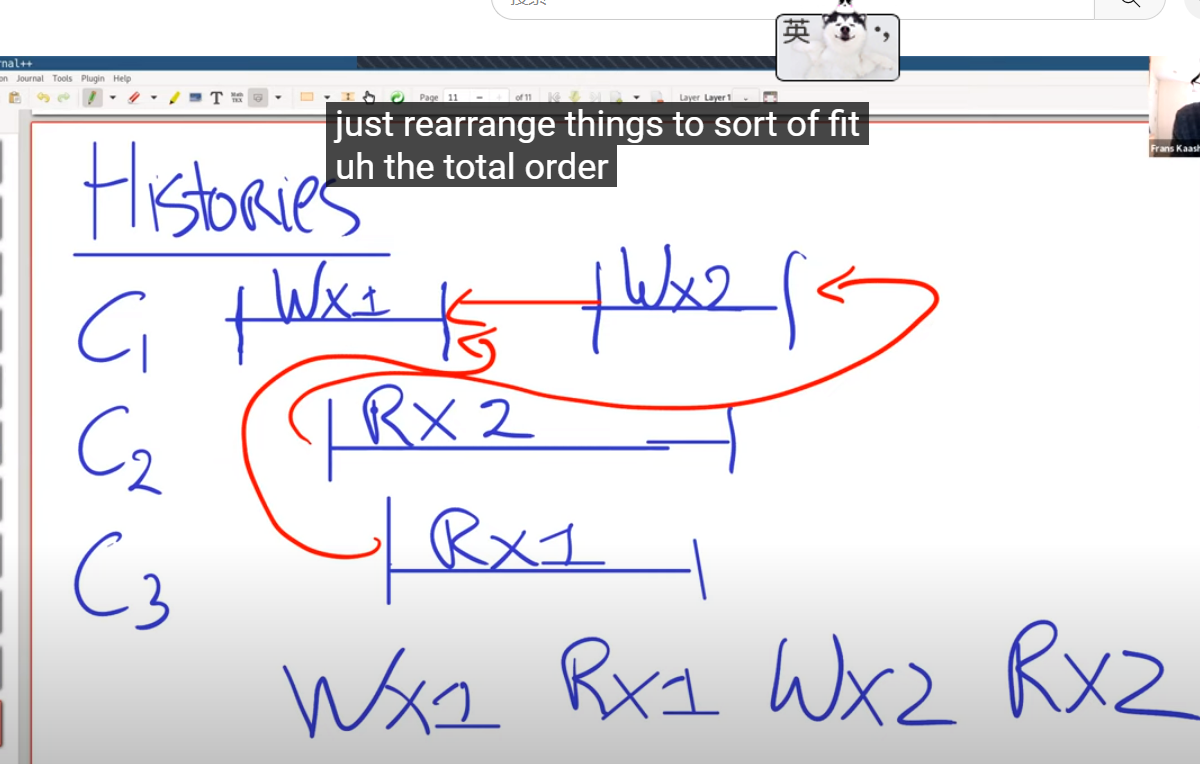 搜索
英
rnal++
on Journal Tools Plugin Help
Page 11 of 11 Layer Layer 1
just rearrange things to sort of fit
uh the total order
Frans Kaash
Histories
C1 Wx1 Wx2
C2 Rx2
C3 Rx1
Wx1 Rx1 Wx2 Rx2